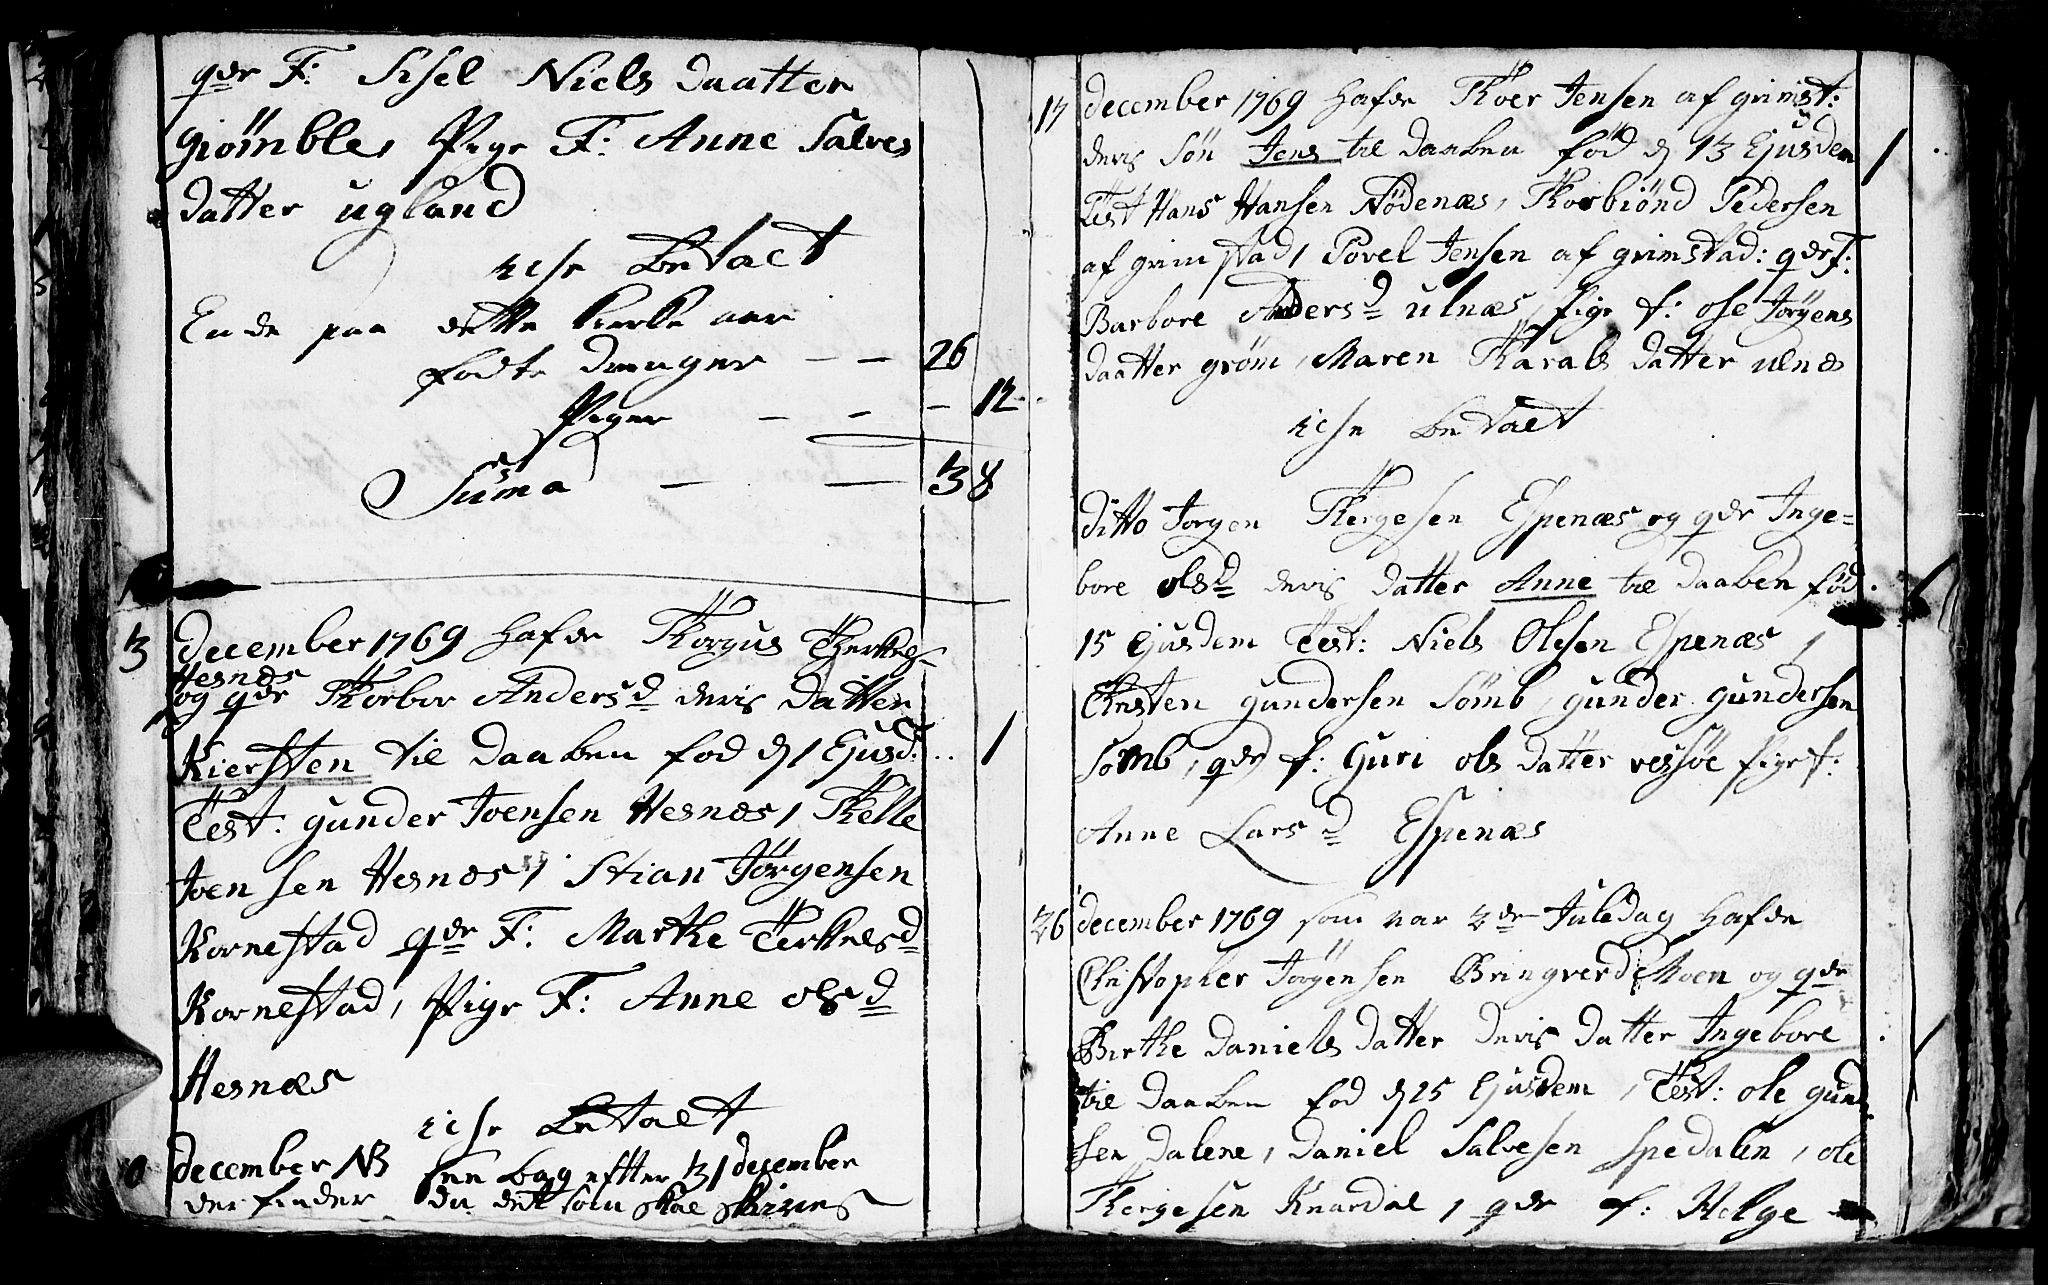 qde F: Sisel Niels daatter
giömble, Pige F: Anne Salves
datter ugland
Ende paa dette kierke aar
födte drenger — — 26
Piger — — — 12
Suma — — 38
3 december 1769 hafde Torgus Therkels
Hesnæs
og qde Torbor Anders d deris datter
Kiersten til daaben fød d 1 Ejusd: .. 1
Test. gunder Joensen Hesnæs, Kelle
Joensen Hesnæs, Stian Jörgensen
Kornestad qde F: Marthe Terkels d
Kornestad, Pige F: Anne ols d
Hesnæs
december NB see bag efter 31 december
der finder du det som skal skrives
17 december 1769 hafde Thoer Jensen af grimst:
deris sön Jens til daaben fød d 13 Ejusdem 1
Test Hans Hansen Nödenæs, Thorbiönd Pedersen
af grimstad, Povel Jensen af grimstad: qde F:
Barbore Anders d ulnæs, pige f: ose Jörgens
daatter gröm, Maren Haralds datter ulnæs
ditto Jorgen Tergesen Espenæs og qde Inge=
bore ols d deris datter Anne til daaben fød
15 Ejusdem Test: Niels Olesen Espenæs,
Christen gundersen Sömb, gunder gundersen
Somb, qde f: Guri ols datter ressöe pige f:
Anne Lars d Espenæs
26 december 1769 som var 2de Juledag hafde
Christopher Jörgensen Bringverd Moen og qde
Birthe daniels datter deris datter Ingebore
til daaben fød d 25 Ejusdem, Test: ole gund
sen dalene, daniel Salvesen Spedalen, ole
Tergesen Knardal, qde f: Helge